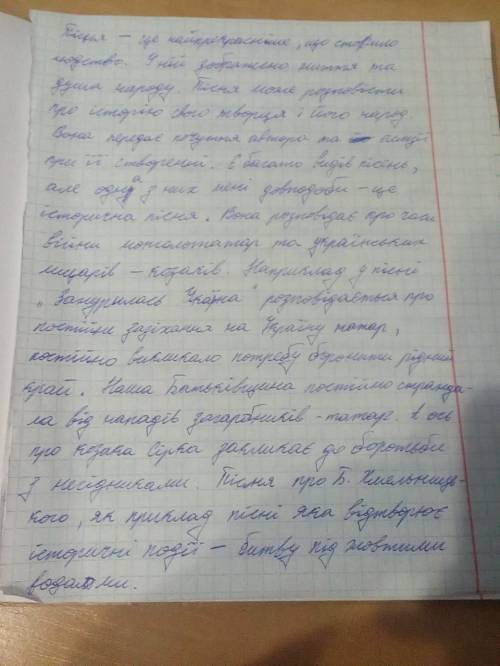 Пісня – це найпрекрасніше, що створило
людство. У ній зображено життя та
душа народу. Пісня може розповісти
про історію свого творця і його народ.
Вона передає почуття автора та емоції
при її створенні. Є багато видів пісень,
але одна з них мені довподоби – це
історична пісня. Вона розповідає про часи
війни монголотатар та українських
лицарів – козаків. Наприклад у пісні
„Зажурилась Україна" розповідається про
постійні зазіхання на Україну татар,
постійно викликало потребу боронити рідний
край. Наша Батьківщина постійно стражда-
ла від нападів загарбників - татар. А ось
про козака Сірка закликає до боротьби
з несідниками. Пісня про Б. Хмельниць-
кого, як приклад пісні яка відтворює
історичні події – битву під жовтими
водами.